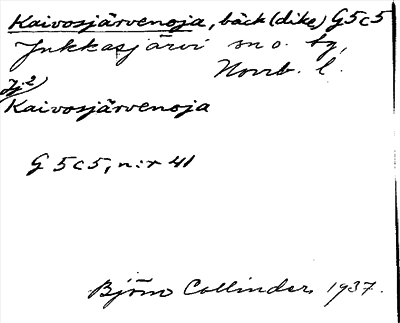 Kaivosjärvenoja, bäck (dike) G5c5
Jukkasjärvi sn o. by,
Norrb. l.
Jj 2)
Kaivosjärvenoja
G 5 c 5, n:r 41
Björn Collinder 1937.